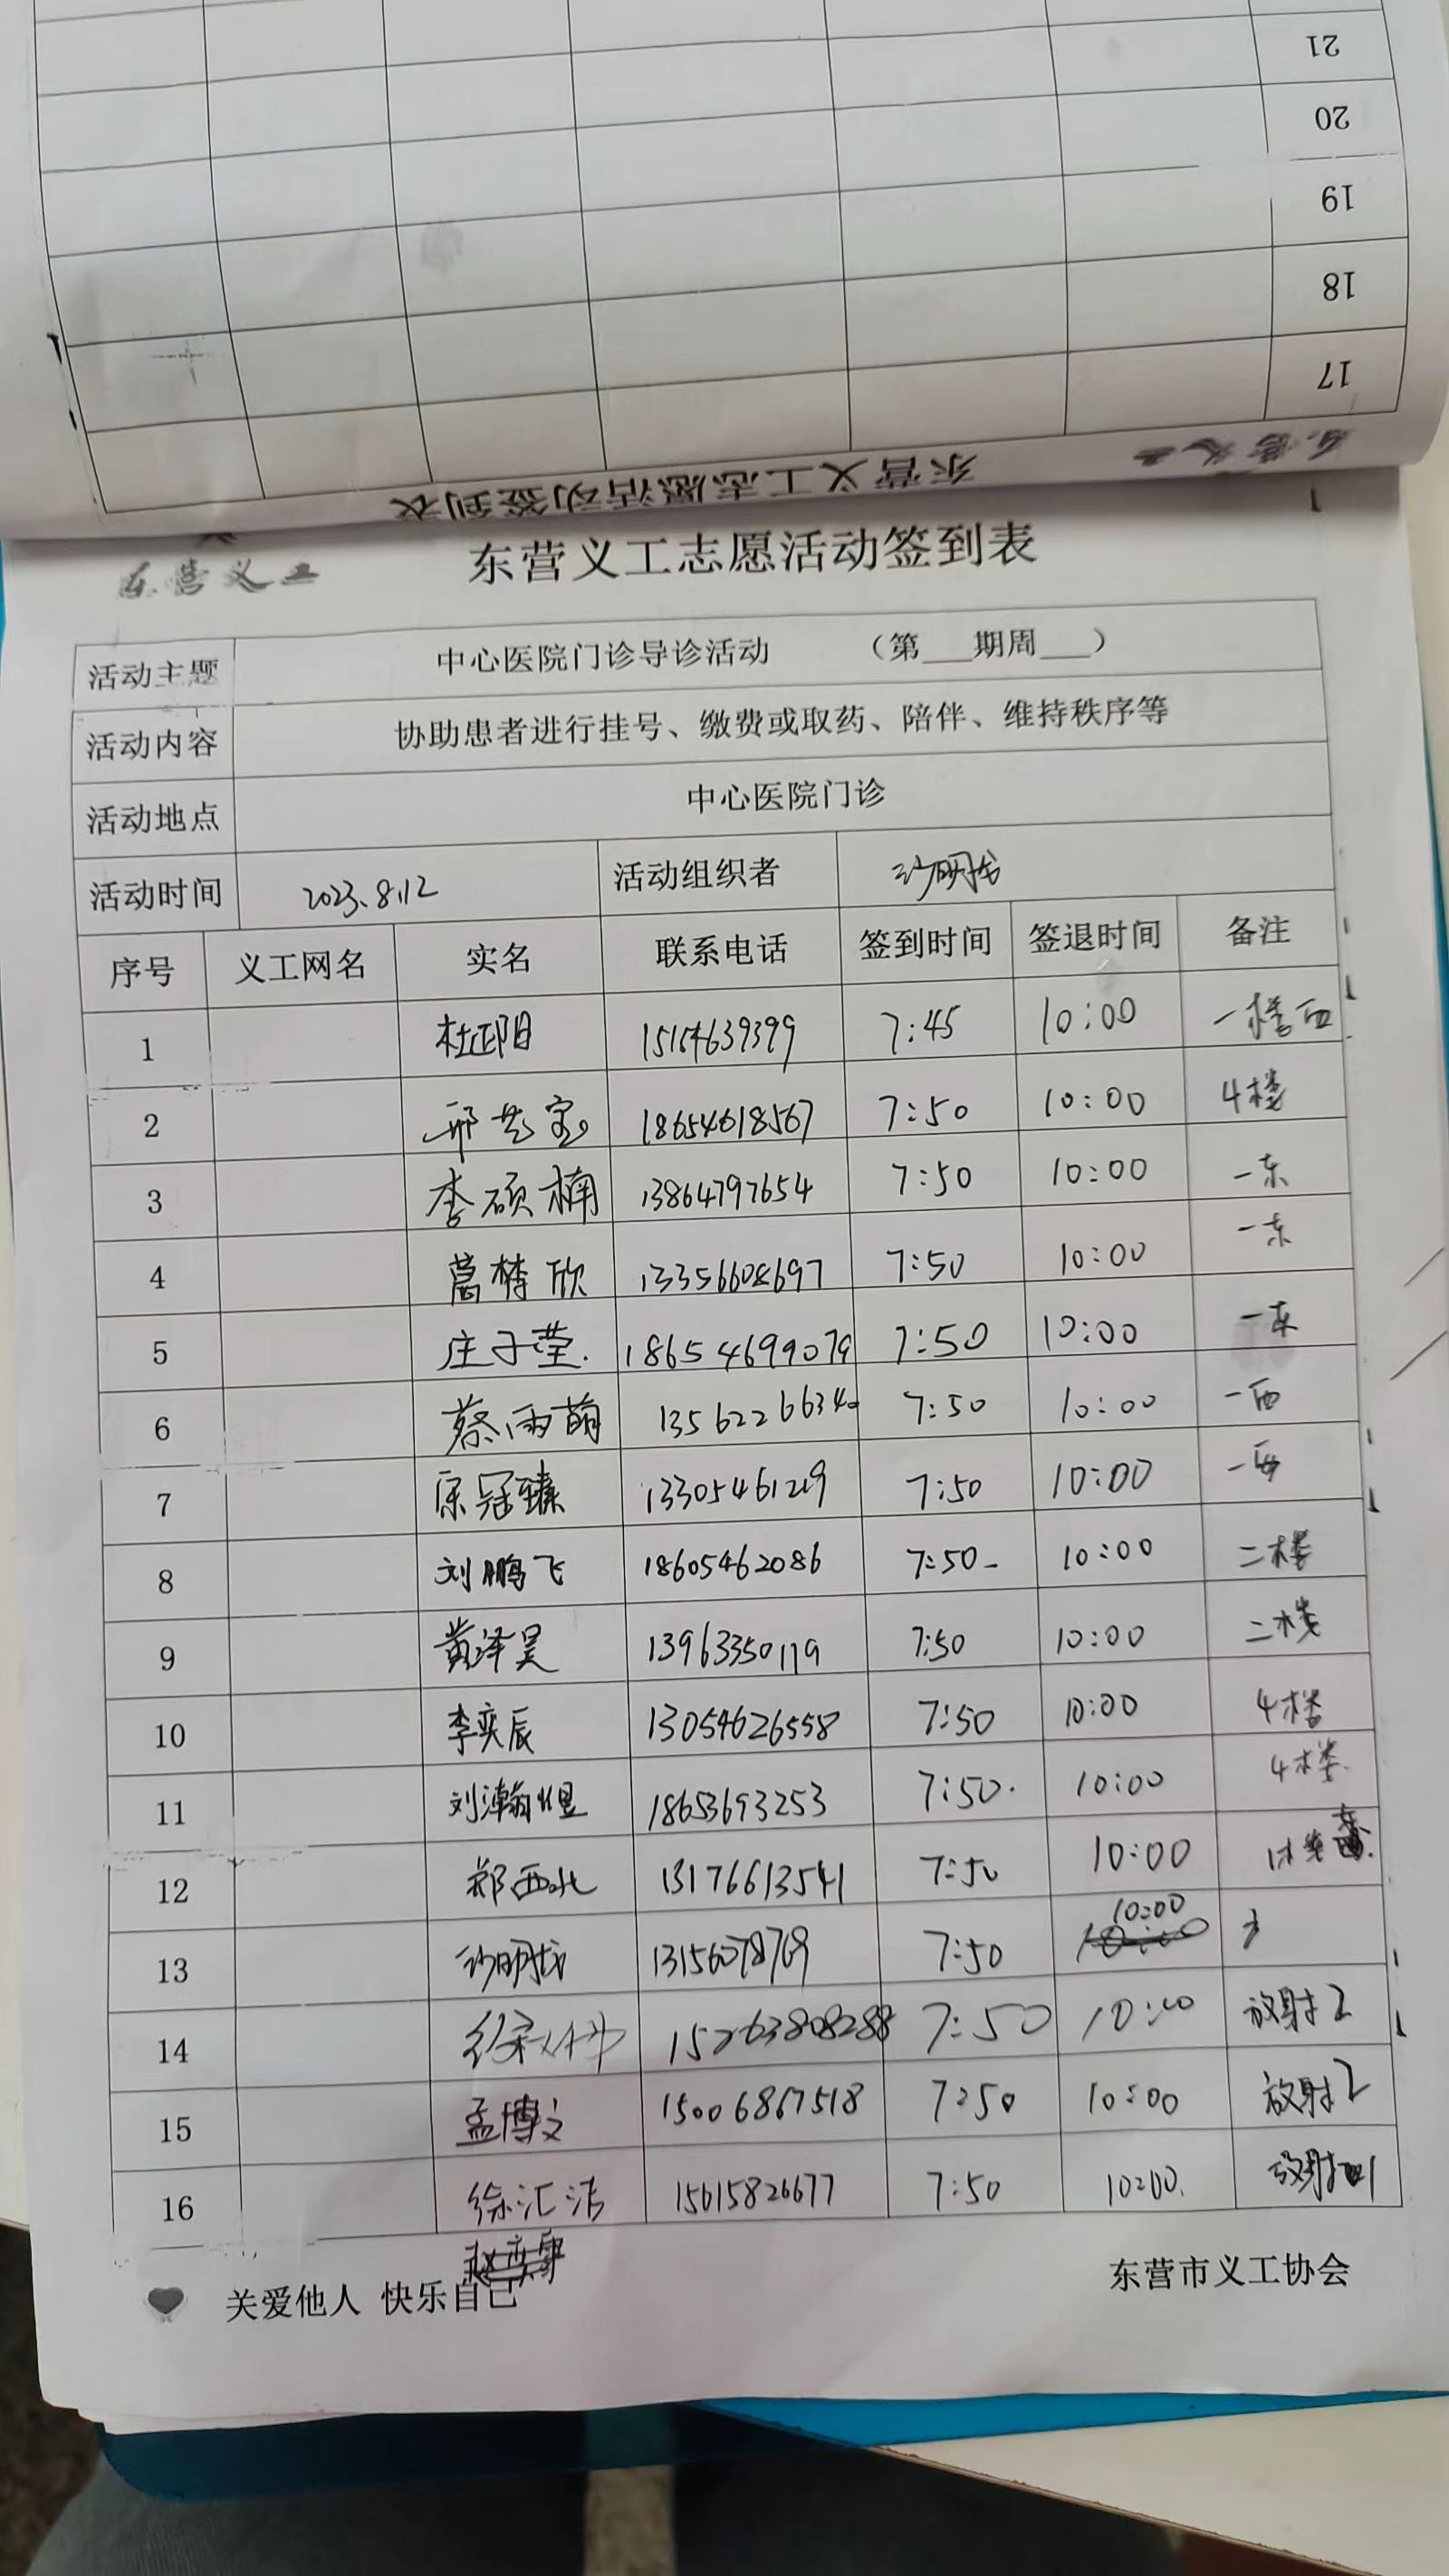 21
20
19
18
17
东营义工
东营义工志愿活动签到表
东营义工
东营义工志愿活动签到表
活动主题 中心医院门诊导诊活动 （第___期周___）
活动内容 协助患者进行挂号、缴费或取药、陪伴、维持秩序等
活动地点 中心医院门诊
活动时间 2023.8.12 活动组织者
序号 义工网名 实名 联系电话 签到时间 签退时间 备注
1 杜邵阳 15154639399 7:45 10:00 一楼西
2 18654618567 7:50 10:00 4楼
3 李硕楠 13864797654 7:50 10:00 一东
4 葛梦欣 13356608697 7:50 10:00 一东
5 庄子莹. 18654699079 7:50 10:00 一东
6 蔡雨萌 13562266340 7:50 10:00 一西
7 宋冠臻 13305461219 7:50 10:00 一西
8 刘鹏飞 18605462086 7:50 10:00 二楼
9 黄泽昊 13963350119 7:50 10:00 二楼
10 李奕辰 13054626558 7:50 10:00 4楼
11 刘瀚煜 18653693253 7:50. 10:00 4楼.
12 郑西北 13176613541 7:50 10:00
13 7:50 10:00
14 15263808288 7:50 10:00 放射2
15 孟博文 15006867518 7:50 10:00 放射2
16 徐汇洁 15615826677 7:50 10:00. 放射1
关爱他人 快乐自己
东营市义工协会